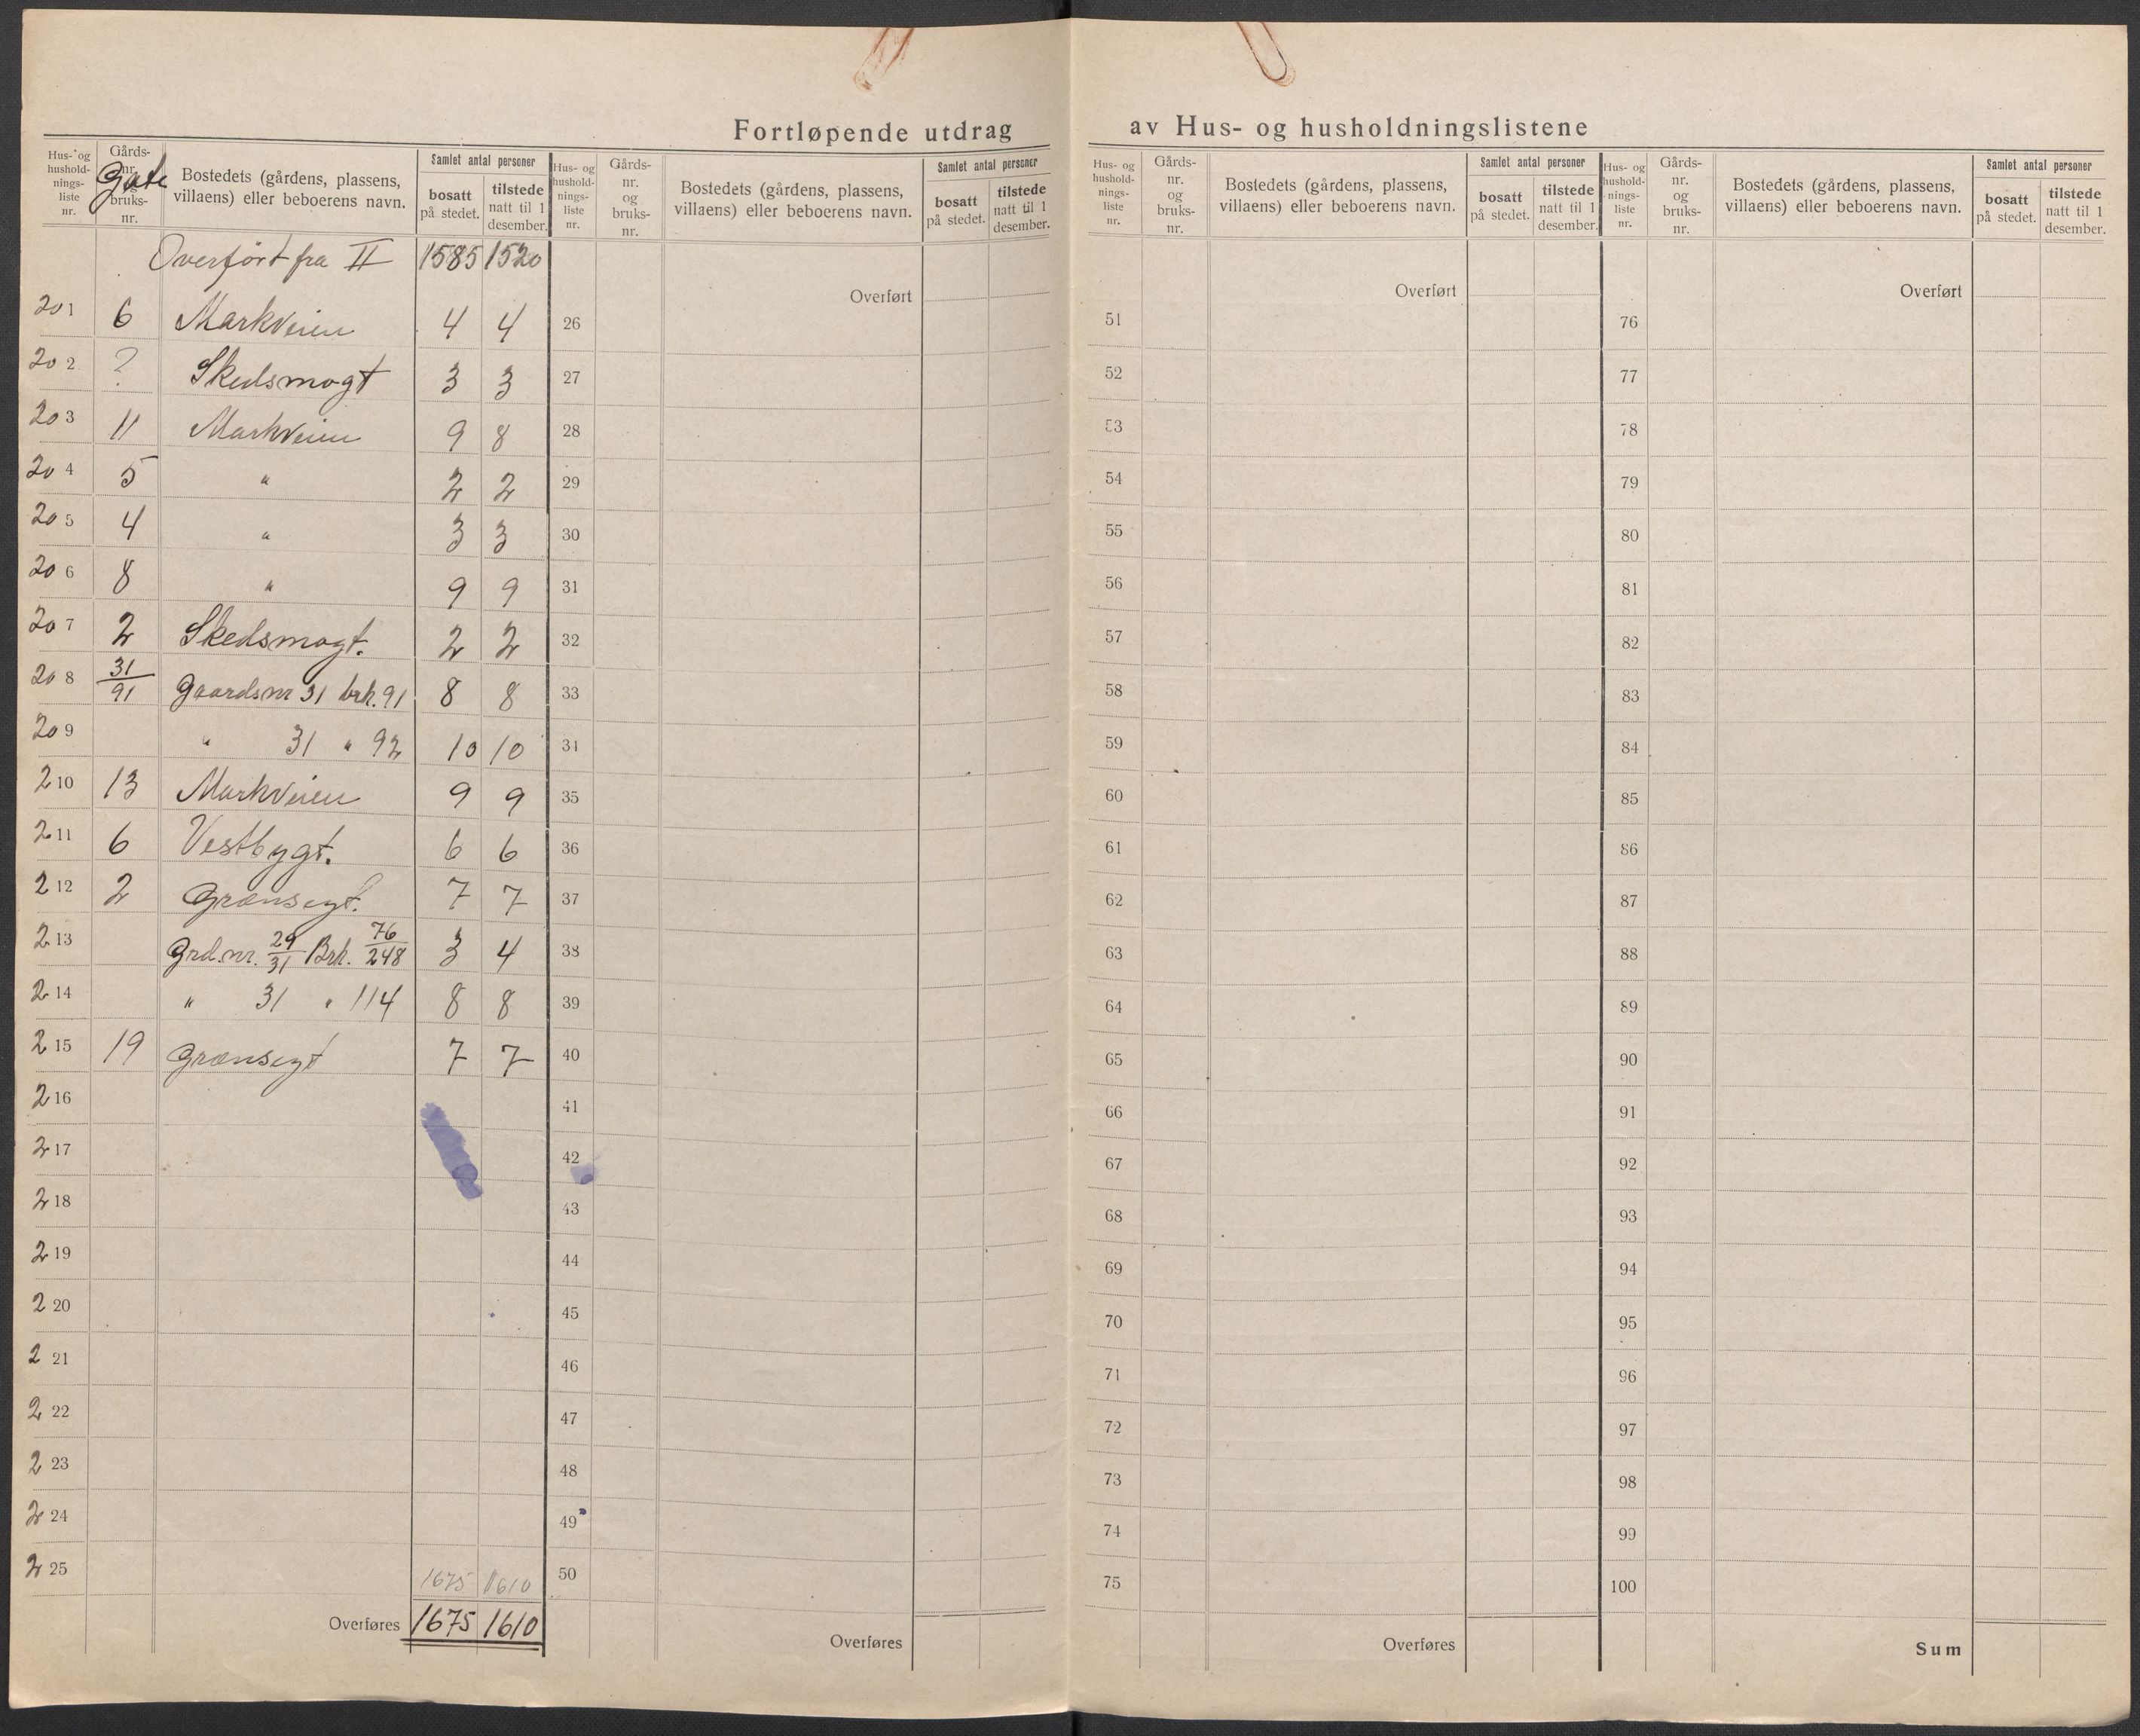 Fortløpende utdrag av Hus- og husholdningslistene
Hus- og husholdnings-liste nr. Gårds-nr. og bruks-nr. Gate Bostedets (gårdens, plassens, villaens) eller beboerens navn. Samlet antal personer bosatt på stedet. tilstede natt til 1 desember.
Overført fra II 1585 1520
201 6 Markveien 4 4
202 ? Skedsmogt 3 3
203 11 Markveien 9 8
204 5 " 2 2
205 4 " 3 3
206 8 " 9 9
207 2 Skedsmogt. 2 2
208 31/91 Gaardsnr 31 brk. 91 8 8
209 " 31 " 92 10 10
210 13 Markveien 9 9
211 6 Vestbygt. 6 6
212 2 Grænsegt. 7 7
213 Grd.nr. 29/31 Brk. 76/248 3 4
214 " 31 " 114 8 8
215 19 Grænsegt 7 7
216
217
218
219
220
221
222
223
224
225 1675 1610
Overføres 1675 1610
Hus- og husholdnings-liste nr. Gårds-nr. og bruks-nr. Bostedets (gårdens, plassens, villaens) eller beboerens navn. Samlet antal personer bosatt på stedet. tilstede natt til 1 desember.
Overført
26
27
28
29
30
31
32
33
34
35
36
37
38
39
40
41
42
43
44
45
46
47
48
49
50
Overføres
Hus- og husholdnings-liste nr. Gårds-nr. og bruks-nr. Bostedets (gårdens, plassens, villaens) eller beboerens navn. Samlet antal personer bosatt på stedet. tilstede natt til 1 desember.
Overført
51
52
53
54
55
56
57
58
59
60
61
62
63
64
65
66
67
68
69
70
71
72
73
74
75
Overføres
Hus- og husholdnings-liste nr. Gårds-nr. og bruks-nr. Bostedets (gårdens, plassens, villaens) eller beboerens navn. Samlet antal personer bosatt på stedet. tilstede natt til 1 desember.
Overført
76
77
78
79
80
81
82
83
84
85
86
87
88
89
90
91
92
93
94
95
96
97
98
99
100
Sum